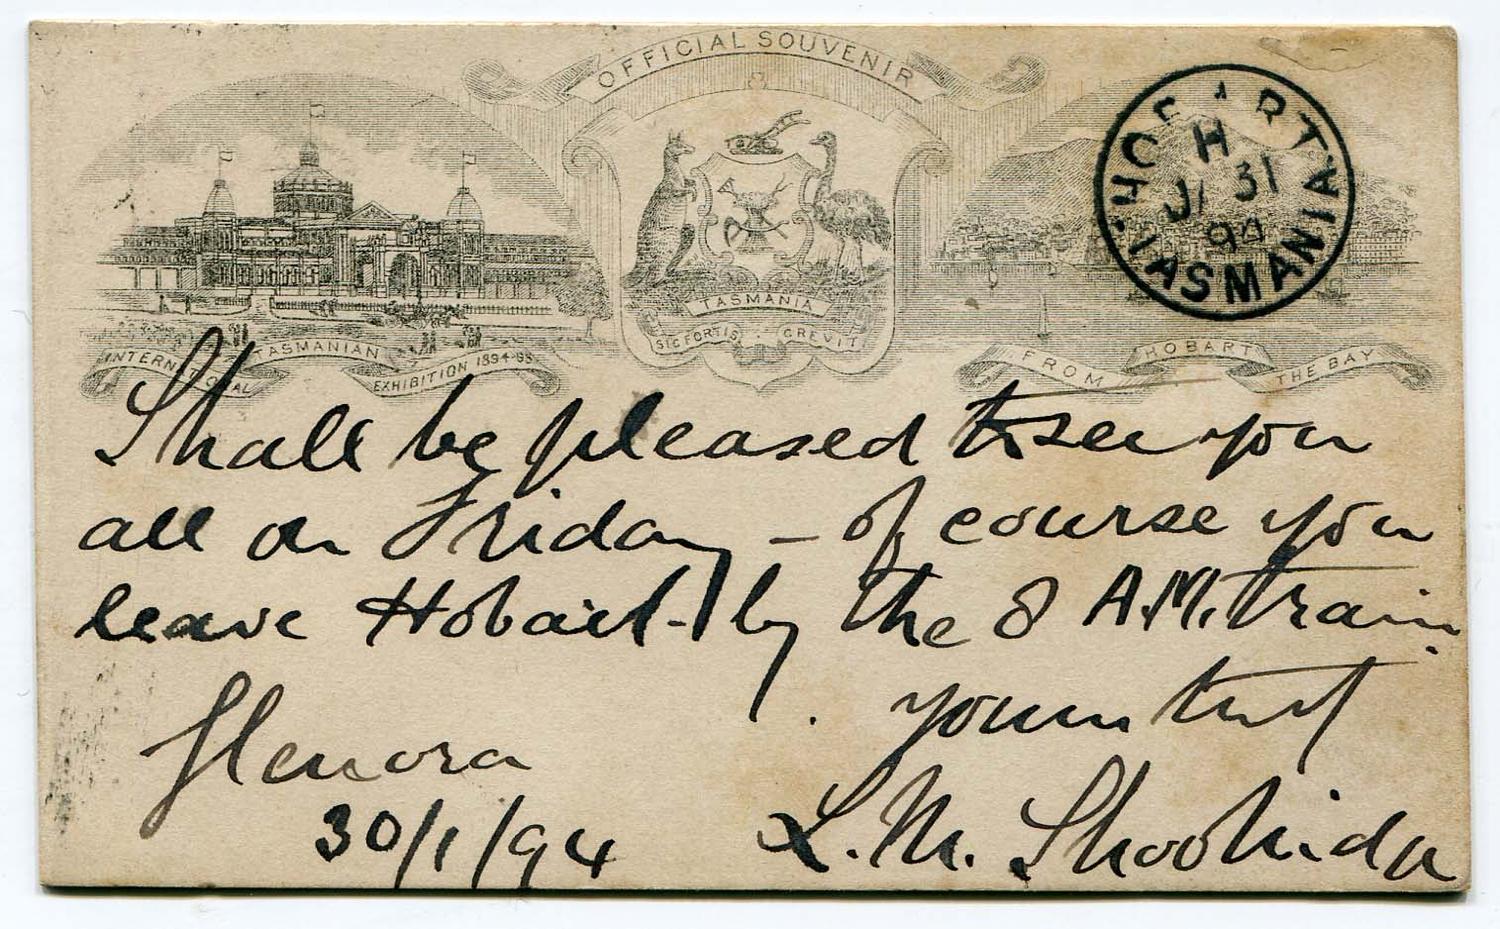 OFFICIAL SOUVENIR
HOBART
H
JA 31
94
TASMANIA
TASMANIA
SIC FORTIS CREVIT
TASMANIAN
INTERNATIONAL EXHIBITION 1894-95
FROM HOBART THE BAY
Shall be pleased to see you
all on Friday - of course you
leave Hobart by the 8 A.M. train
Glenora
30/1/94
L. M. Shoobridge